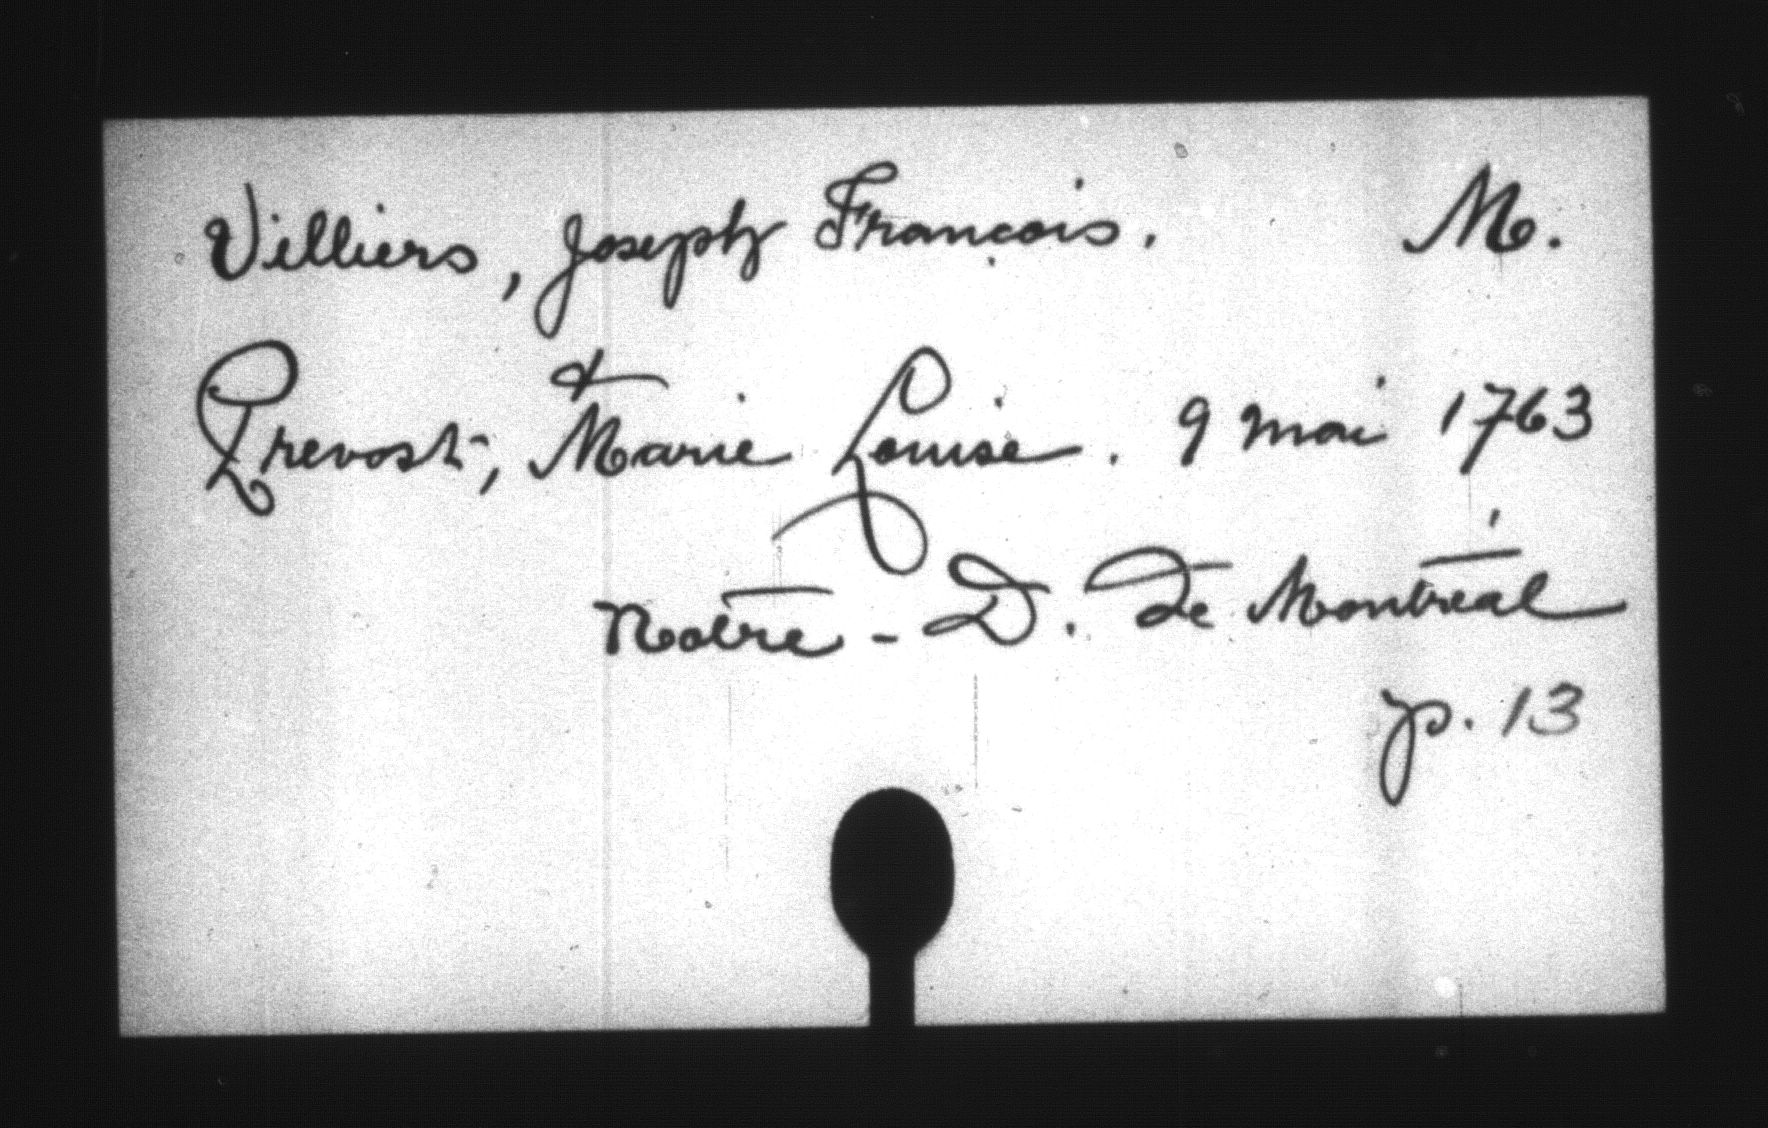 Villiers, Joseph François. M.
Prevost, Marie Louise. 9 mai 1763
Notre-D. de Montréal
p. 13